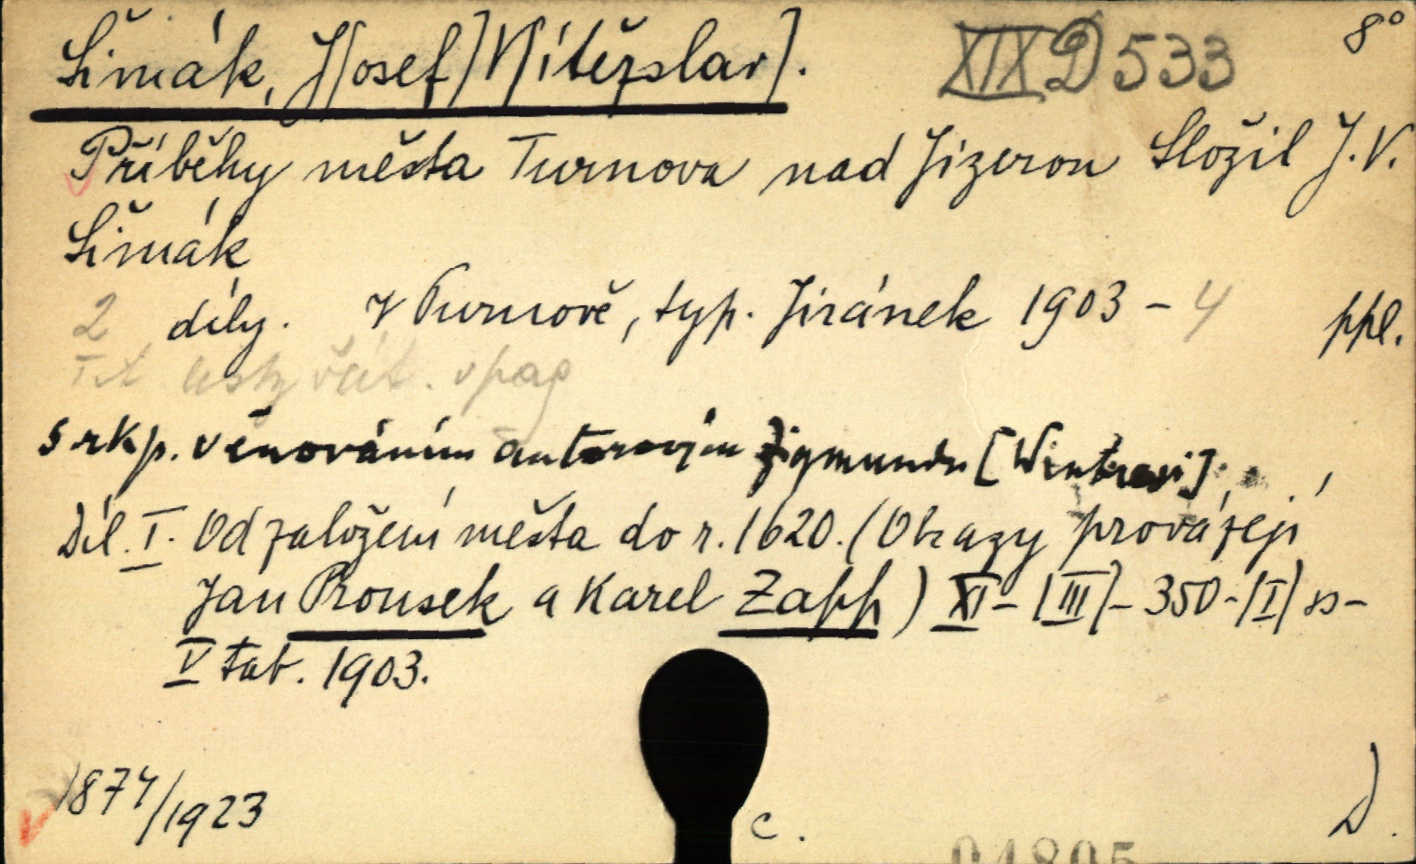 Šimák, J[osef] V[ítězslav]. XIX D 533 8°
Příběhy města Turnova nad Jizerou Složil J. V.
Šimák
2 díly. V Turnově, typ. Jiránek 1903 - 4 ppl.
s rkp. věnováním autorovým Zigmundu [Wintrovi],
Díl. I. Od založení města do r. 1620. (Obrazy provázejí
Jan Prousek a Karel Zapp) XI - [III] - 350 - [I] ss -
V tab. 1903.
1874/1923 c. D.
04805